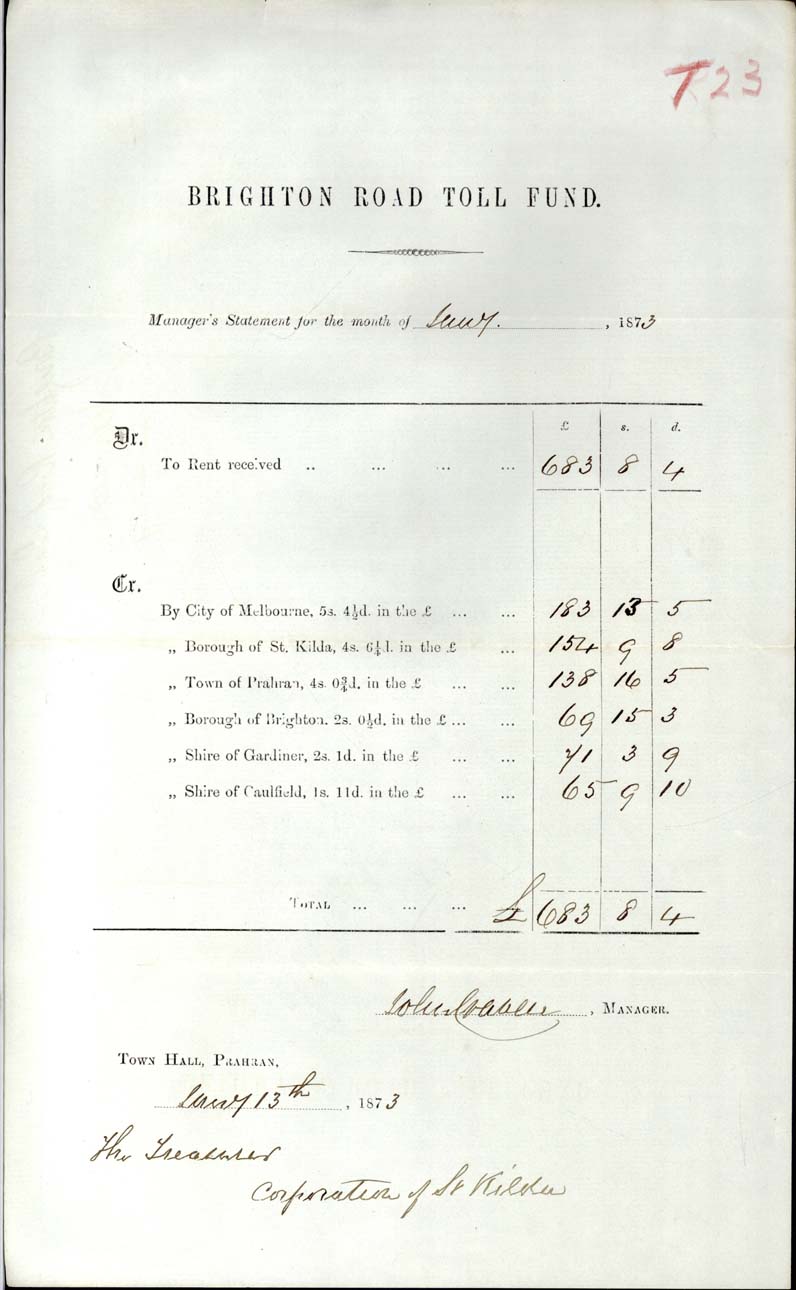 T23
BRIGHTON ROAD TOLL FUND.
Manager's Statement for the month of Jany. , 1873
£ s. d.
Dr.
To Rent received .. ... ... ... 683 8 4
Cr.
By City of Melbourne, 5s. 4½d. in the £ ... ... 183 13 5
„ Borough of St. Kilda, 4s. 6¼d. in the £ ... 154 9 8
„ Town of Prahran, 4s. 0¾d. in the £ ... ... 138 16 5
„ Borough of Brighton. 2s. 0½d. in the £ ... ... 69 15 3
„ Shire of Gardiner, 2s. 1d. in the £ ... ... 71 3 9
„ Shire of Caulfield, 1s. 11d. in the £ ... ... 65 9 10
TOTAL ... ... ... £ 683 8 4
John , MANAGER.
TOWN HALL, PRAHRAN,
Jany 13th , 1873
The Treasurer
Corporation of St Kilda